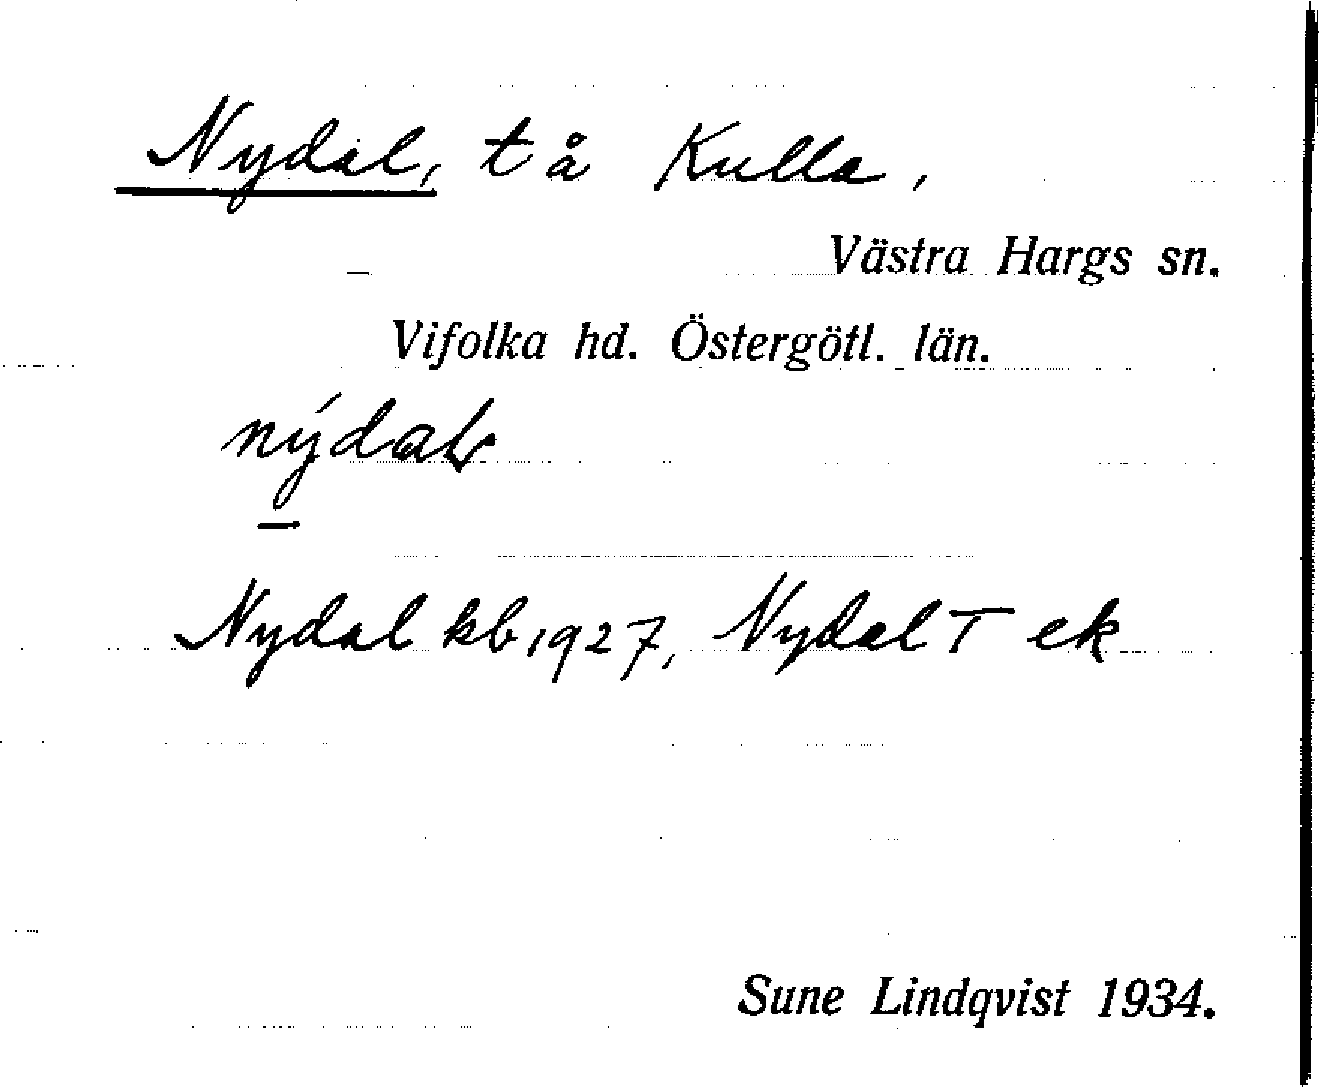 Nydal, t å Kulla,
Västra Hargs sn.
Vifolka hd. Östergötl. län.
nýdal
Nydal kb 1927, Nydal T ek
Sune Lindqvist 1934.